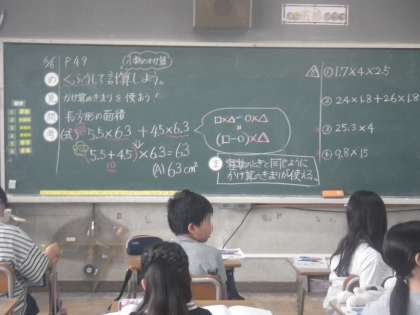 5/8 P49 小数のかけ算
め くふうして計算しよう。
見 かけ算のきまりを使おう！
問 長方形の面積
考 (式) 5.5×6.3 + 4.5×6.3
(5.5+4.5)×6.3=63
10
(A) 63cm²
□×△-○×△
=
(□-○)×△
ま 整数のときと同じように
かけ算のきまりが使える。
① 1.7×4×2.5
② 2.4×1.8+2.6×1.8
③ 25.3×4
④ 9.8×15